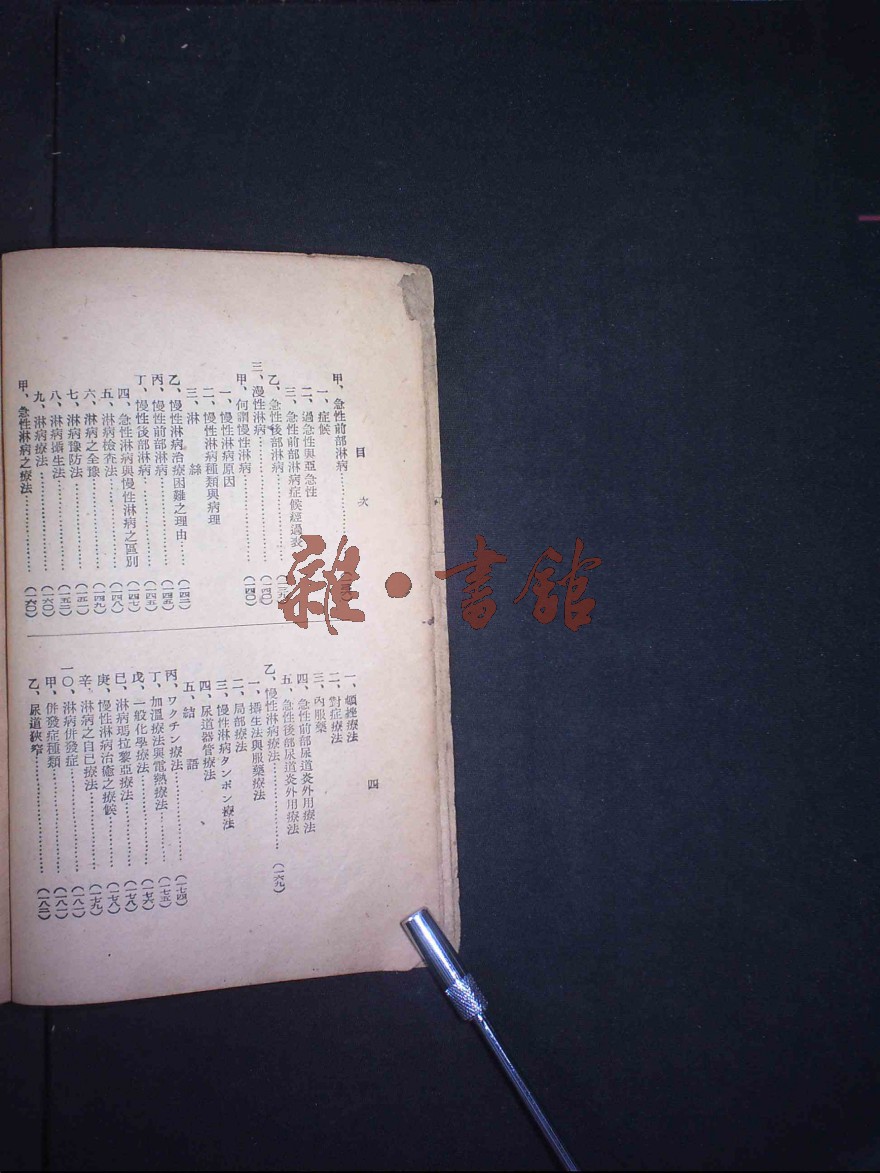 目次
四
甲、急性前部淋病……
一、症候
二、過急性與亞急性
三、急性前部淋病症候經過表
乙、急性後部淋病……(一四〇)
三、漫性淋病……(一四〇)
甲、何謂慢性淋病……(一四〇)
一、慢性淋病原因
二、慢性淋病種類與病理
三、淋絲
乙、慢性淋病治療困難之理由……(一四二)
丙、慢性前部淋病……(一四五)
丁、慢性後部淋病……(一四五)
四、急性淋病與慢性淋病之區別……(一四七)
五、淋病檢查法……(一四八)
六、淋病之全豫……(一四九)
七、淋病豫防法……(一五一)
八、淋病攝生法……(一五二)
九、淋病療法……(一六〇)
甲、急性淋病之療法……(一六〇)
一、頓挫療法
二、對症療法
三、內服藥
四、急性前部尿道炎外用療法
五、急性後部尿道炎外用療法
乙、慢性淋病療法……(一六九)
一、攝生法與服藥療法
二、局部療法
三、慢性淋病タンポン療法
四、尿道器管療法
五、結語
丙、ワクチン療法……(一七四)
丁、加溫療法與電熱療法……(一七五)
戊、一般化學療法……(一七六)
巳、淋病瑪拉黎亞療法……(一七八)
庚、慢性淋病治癒之療候……(一七八)
辛、淋病之自己療法……(一七九)
一〇、淋病併發症……(一八一)
甲、併發症種類……(一八一)
乙、尿道狹窄……(一八二)
雜·書館